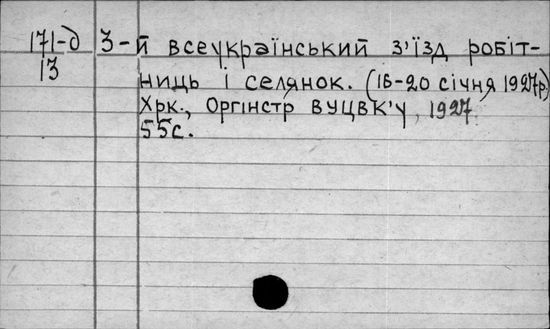 171-д 3-й всеукраїнський з'їзд робіт-
13 ниць і селянок. (16-20 січня 1927р.)
Хрк., Оргінстр ВУЦВК'у, 1927.
55с.